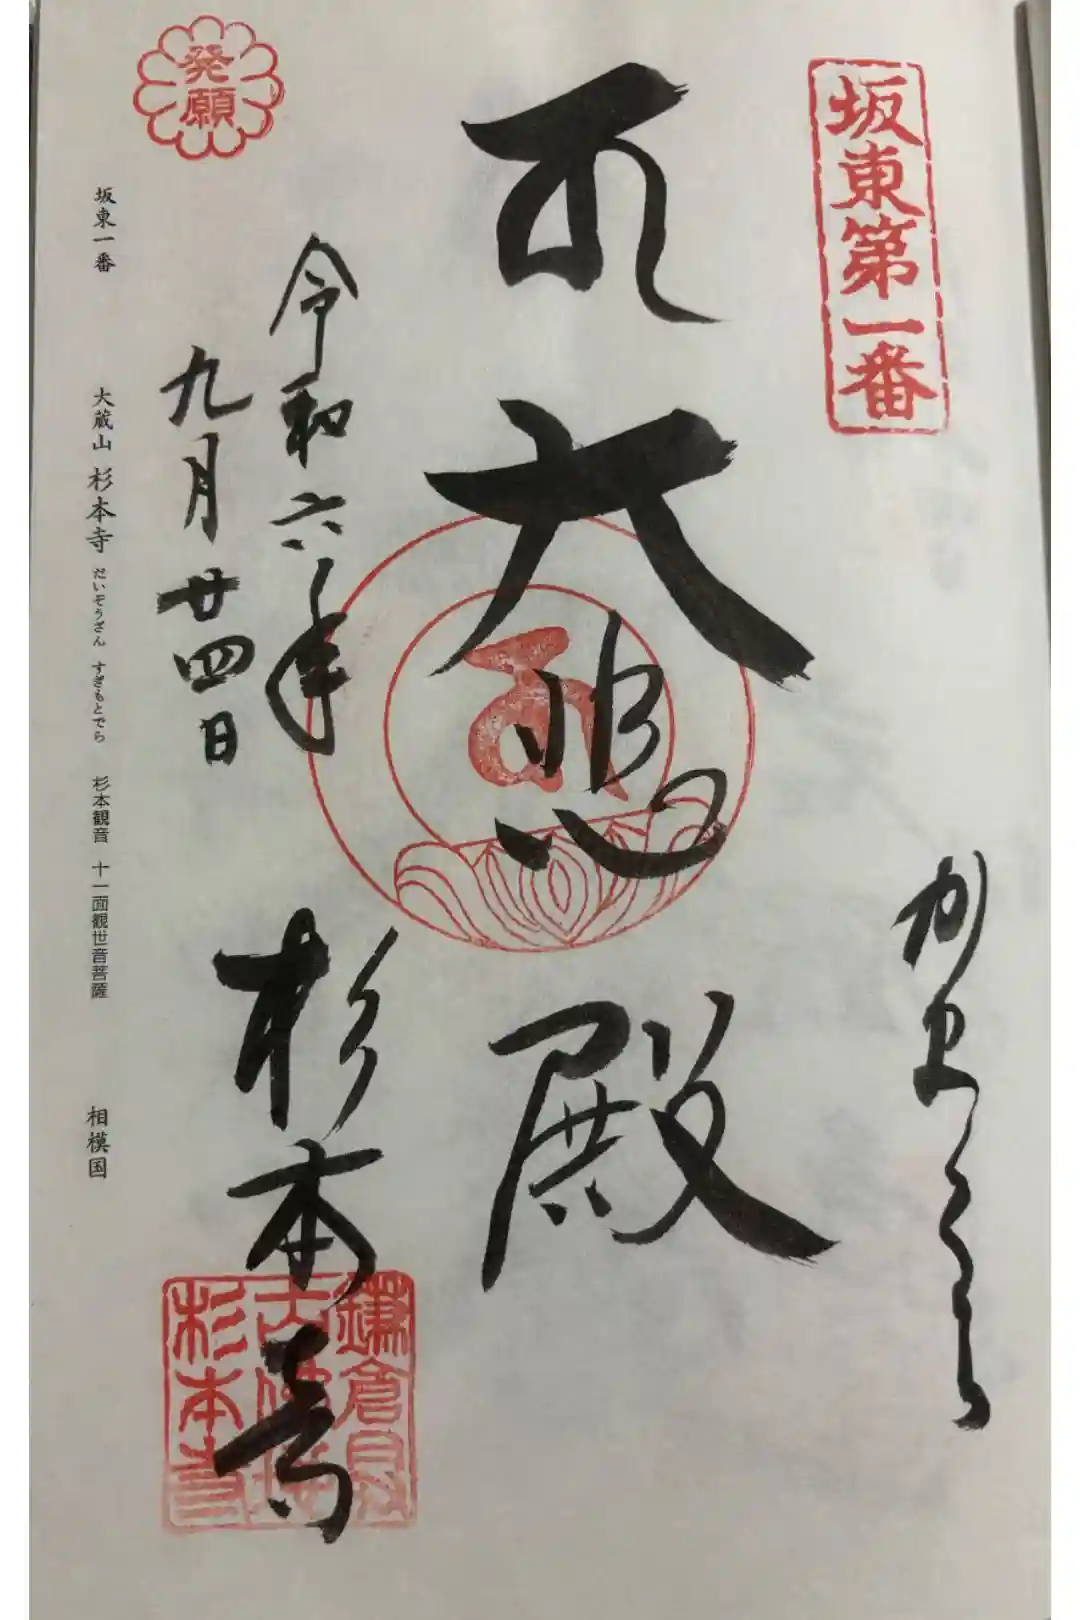 坂東第一番
大悲殿
令和六年
九月廿四日
杉本寺
鎌倉最
古佛地
杉本寺
発願
坂東一番 大蔵山 杉本寺 だいぞうざん すぎもとでら 杉本観音 十一面観世音菩薩 相模国